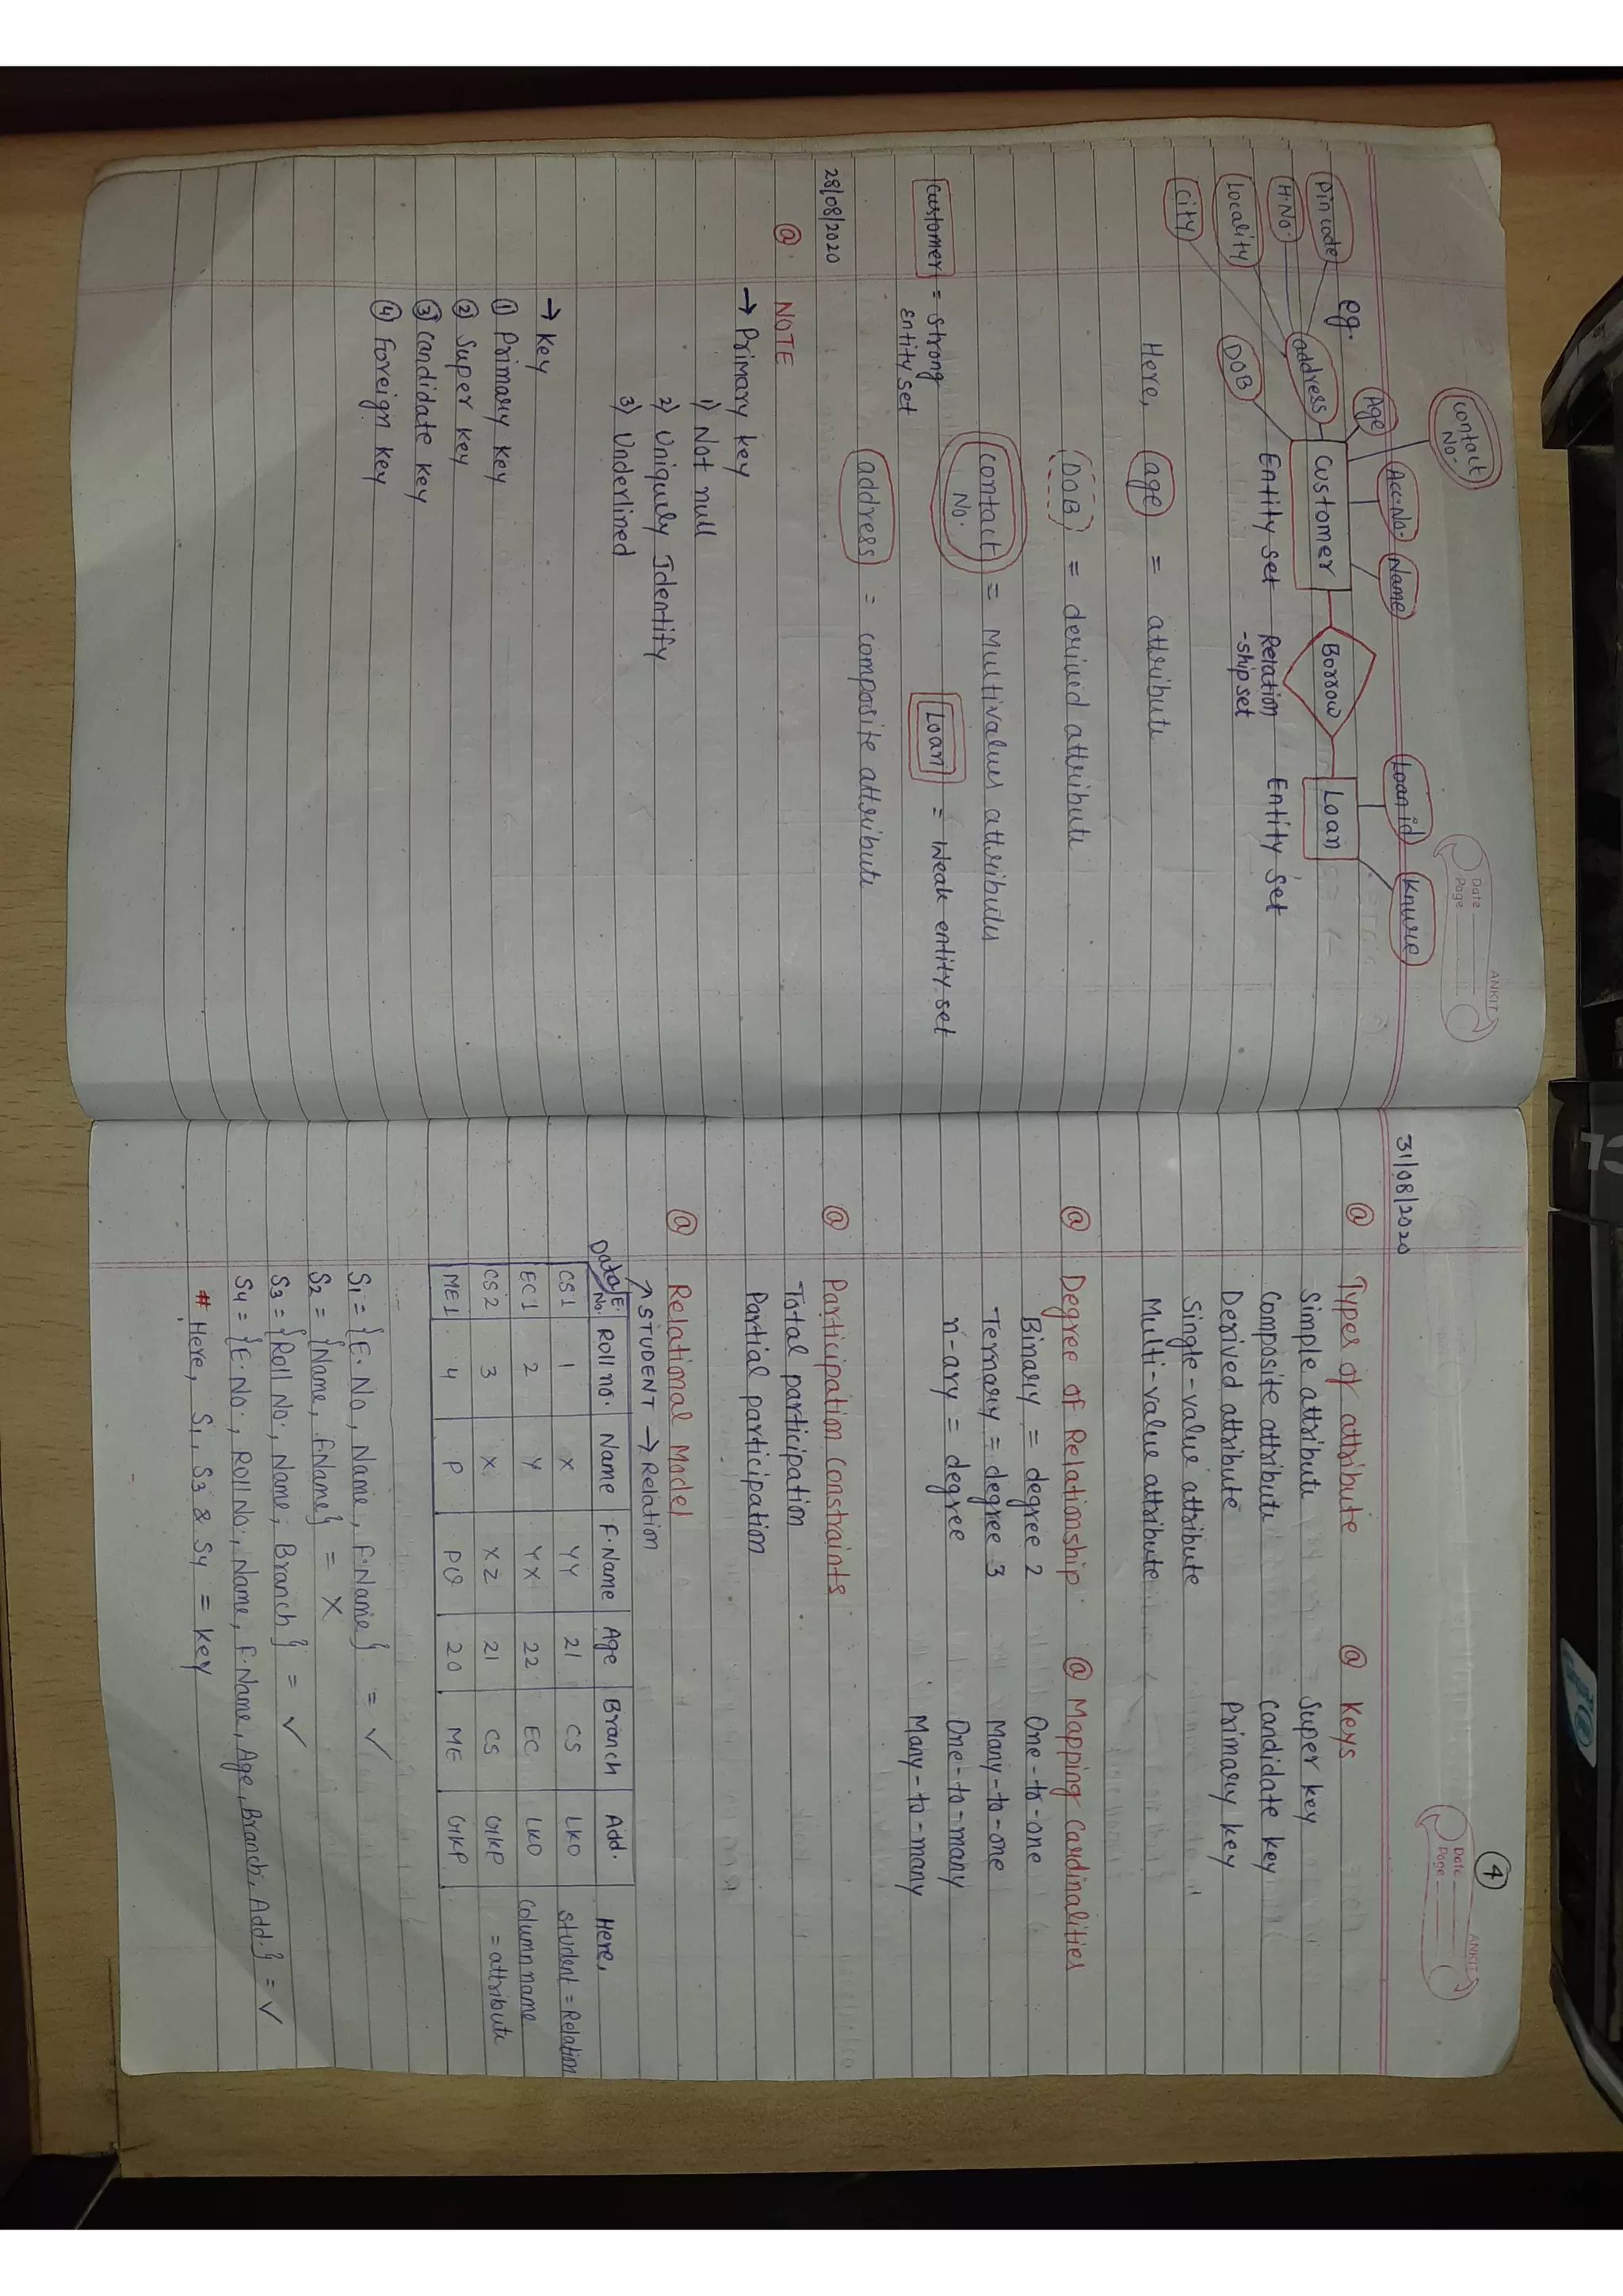 Date
Page
ANKIT
contact
No.
eg.
Age
Acc.No.
Name
Loan id
Pin code
H.No.
Locality
City
address
DOB
Customer
Borrow
Loan
Entity set
Relation
-ship set
Entity set
Here, age = attribute
DOB = derived attribute
contact
No.
= Multivalues attributes
customer = strong
entity set
Loan = Weak entity set
address = composite attribute
28/08/2020
@ NOTE
→ Primary key
1) Not null
2) Uniquely Identify
3) Underlined
→ key
① Primary key
② Super key
③ candidate key
④ foreign key
4
Date
Page
ANKIT
31/08/2020
@ Types of attribute @ Keys
Simple attribute Super key
Composite attribute candidate key
Derived attribute Primary key
Single-value attribute
Multi-value attribute
@ Degree of Relationship @ Mapping Cardinalities
Binary = degree 2 One-to-one
Ternary = degree 3 Many-to-one
n-ary = degree One-to-many
Many-to-many
@ Participation Constraints
Total participation
Partial participation
@ Relational Model
↗ STUDENT → Relation
Data E. No. Roll no. Name F.Name Age Branch Add. Here,
CS1 1 X YY 21 CS LKO student = Relation
EC1 2 Y YX 22 EC LKO column name
CS2 3 X XZ 21 CS GKP = attribute
ME1 4 P PQ 20 ME GKP
S1 = {E. No, Name, F.Name} = ✓
S2 = {Name, F.Name} = X
S3 = {Roll No., Name, Branch} = ✓
S4 = {E.No., Roll No., Name, F.Name, Age, Branch, Add.} = ✓
# Here, S1, S3 & S4 = key